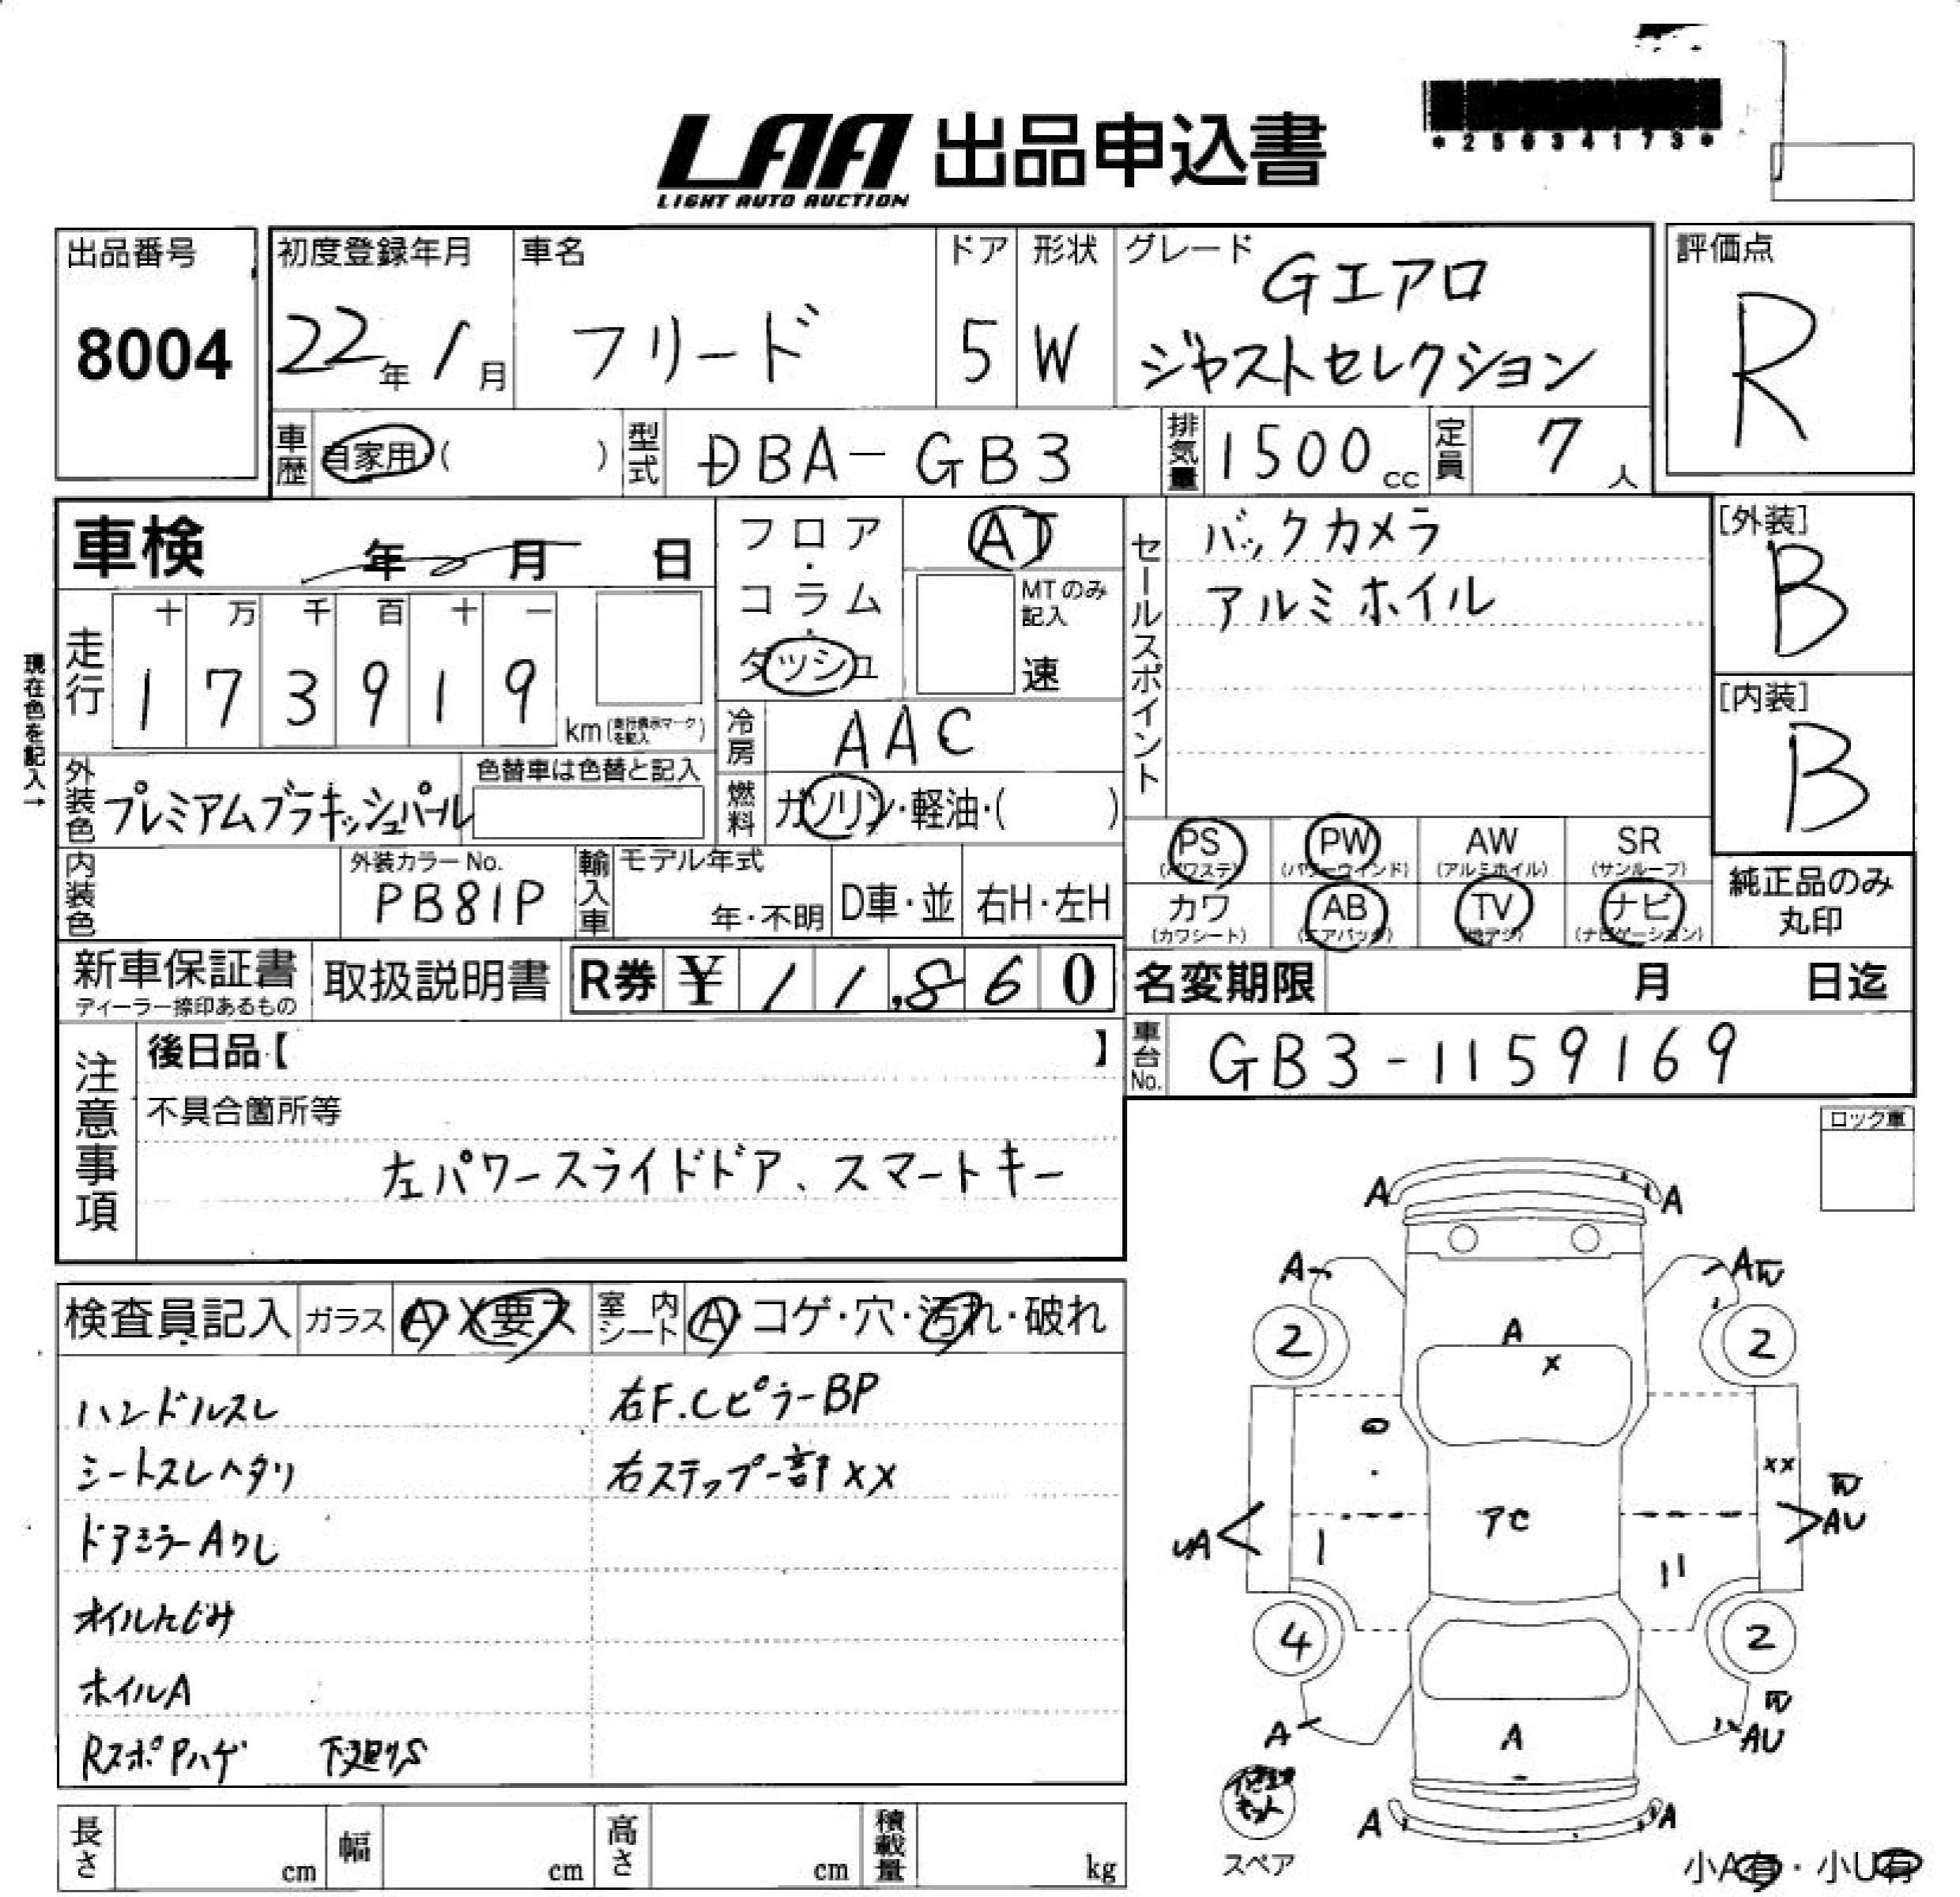 *25034173*
LAA 出品申込書
LIGHT AUTO AUCTION
出品番号
8004
初度登録年月
22年1月
車名
フリード
ドア
5
形状
W
グレード
Gエアロ
ジャストセレクション
評価点
R
車歴 自家用( )
型式 DBA-GB3
排気量 1500cc
定員 7人
車検 年 月 日
フロア・コラム・ダッシュ
AT
MTのみ記入
速
現在色を記入→
走行 十 万 千 百 十 一
1 7 3 9 1 9 km
冷房 AAC
燃料 ガソリン・軽油・( )
セールスポイント
バックカメラ
アルミホイル
[外装]
B
[内装]
B
純正品のみ
丸印
外装色 プレミアムブラキッシュパール
色替車は色替と記入
内装色
外装カラーNo.
PB81P
輸入車 モデル年式
年・不明 D車・並 右H・左H
PS (パワステ) PW (パワーウインド) AW (アルミホイル) SR (サンルーフ)
カワ (カワシート) AB (エアバック) TV (地デジ) ナビ (ナビゲーション)
新車保証書
ディーラー捺印あるもの
取扱説明書
R券 ¥ 11,860
名変期限 月 日迄
車台No. GB3-1159169
注意事項
後日品【 】
不具合箇所等
左パワースライドドア、スマートキー
ロック車
検査員記入 ガラス A・X要ス 室内シート A・コゲ・穴・汚れ・破れ
ハンドルスレ
シートスレヘタリ
ドアミラーAワレ
オイルにじみ
ホイルA
RスポPハゲ 下廻りS
右F.CピラーBP
右ステップ一部XX
A A
A A
2 2
A
X
XX
アC
UA AU
4 2
A A AU
A A
スペア
小A有・小U有
長さ cm 幅 cm 高さ cm 積載量 kg